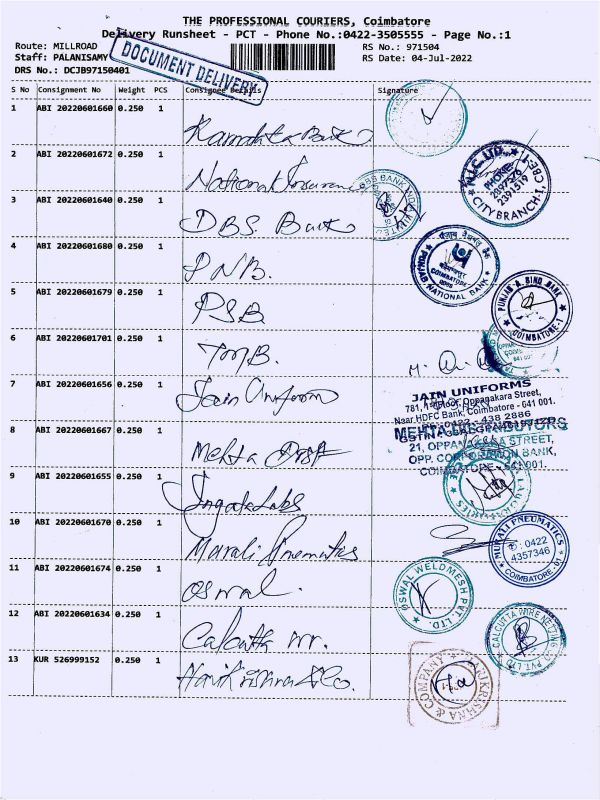 THE PROFESSIONAL COURIERS, Coimbatore
Delivery Runsheet - PCT - Phone No.:0422-3505555 - Page No.:1
Route: MILLROAD
RS No.: 971504
Staff: PALANISAMY
RS Date: 04-Jul-2022
DRS No.: DCJB97150401
DOCUMENT DELIVERY
S No Consignment No Weight PCS Consignee Details Signature
1 ABI 20220601660 0.250 1
Karnataka Bank
2 ABI 20220601672 0.250 1
National Insurance
N.I.C. LTD. CBE-1
PHONE:
2397576
2391519
CITY BRANCH-1,
3 ABI 20220601640 0.250 1
DBS Bank
DBS BANK INDIA LIMITED
4 ABI 20220601680 0.250 1
PNB.
पंजाब नैशनल बैंक
कोयम्बतूर
COIMBATORE
PUNJAB NATIONAL BANK
5 ABI 20220601679 0.250 1
PSB
PUNJAB & SIND BANK
COIMBATORE-1
6 ABI 20220601701 0.250 1
TMB.
7 ABI 20220601656 0.250 1
Jain Uniform
JAIN UNIFORMS
781, 1st Floor, Oppanakara Street,
Naar HDFC Bank, Coimbatore - 641 001.
PH: 0422 - 438 2886
8 ABI 20220601667 0.250 1
Mehta Dist
MEHTA DISTRIBUTORS
21, OPPANAKARA STREET,
OPP. CORPORATION BANK,
COIMBATORE - 641 001.
9 ABI 20220601655 0.250 1
Inga Labs
LABORATORIES
10 ABI 20220601670 0.250 1
Murali Pnematics
MURALI PNEUMATICS
✆: 0422
4357346
COIMBATORE-01
11 ABI 20220601674 0.250 1
oswal.
OSWAL WELDMESH PVT. LTD.
12 ABI 20220601634 0.250 1
Calcutta
CALCUTTA WIRE NETTING PVT. LTD
13 KUR 526999152 0.250 1
Harikrishna & Co.
HARIKRISHNA & COMPANY